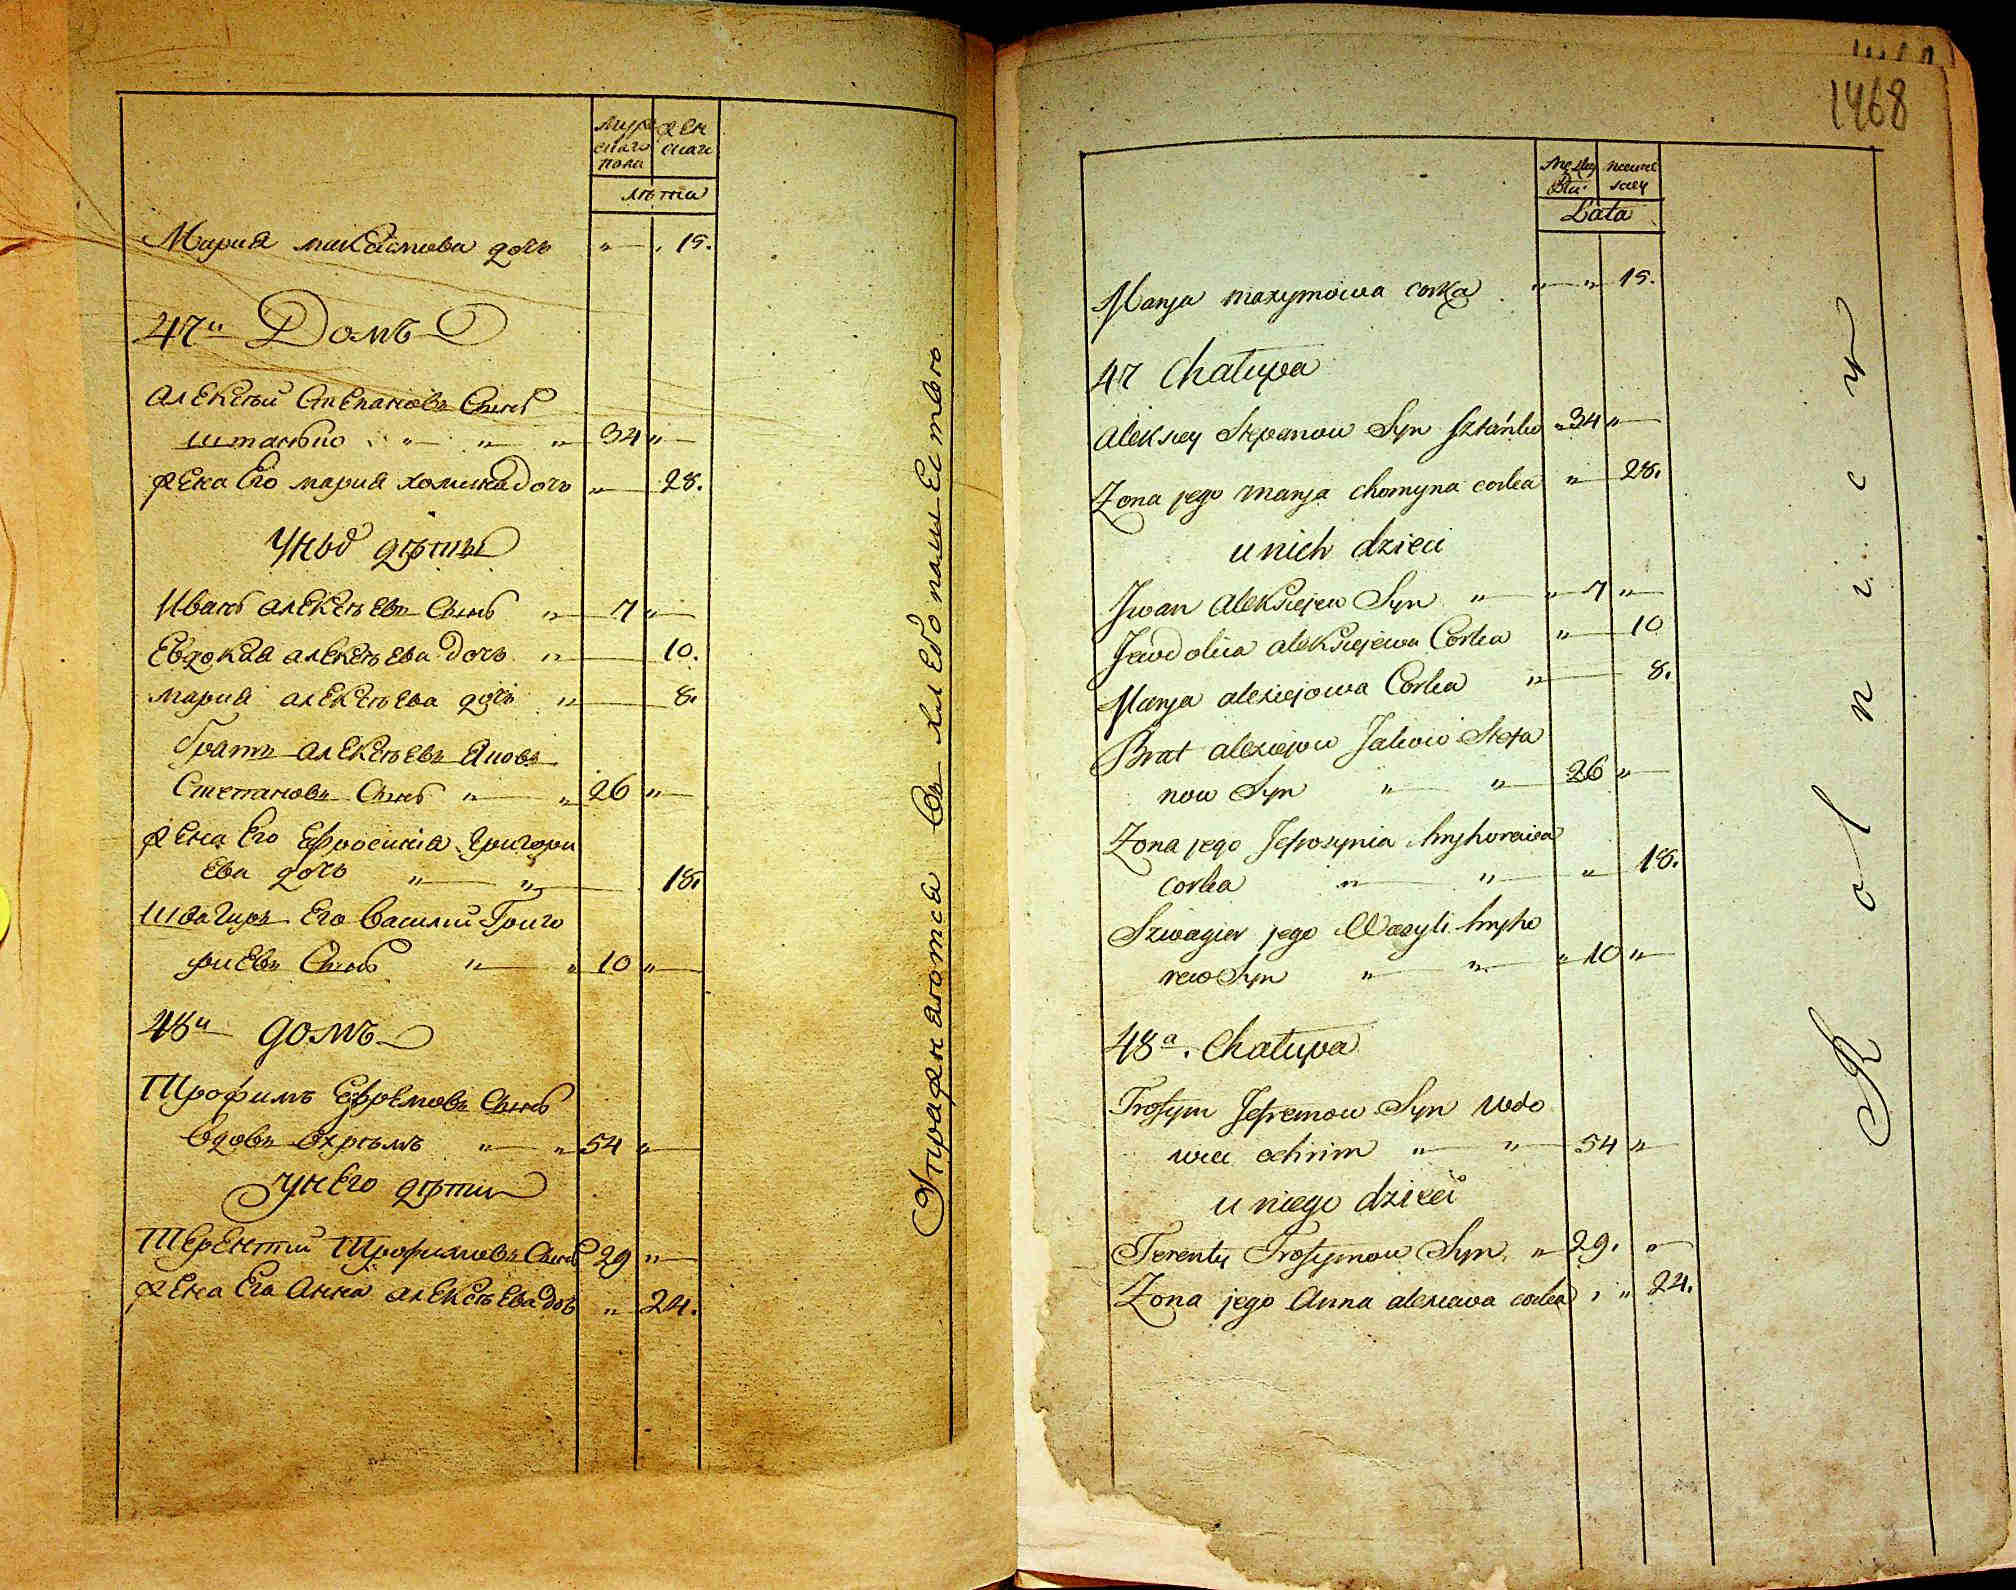 муже
скаго
пола
жен
скаго
лѣта
Мария максимова дочь " — " 15.
47й Домъ
алексѣй Степановъ Сынъ
штанько " — " " 34 " —
жена Его мария хомина дочь " — 28.
У них дѣти
Иванъ алексѣевъ Сынъ " — 7 " —
Евдокия алексѣева дочь " — 10.
мария алексѣева дочь " — 8.
братъ алексѣевъ Яковъ
Степановъ Сынъ " — " 26 " —
жена Его Ефросиния Григори
ева дочь " — " — 18.
швагиръ Его Василий Григо
риевъ Сынъ " — " 10 " —
48й домъ
Трофимъ Ефремовъ Сынъ
вдовъ Охрѣмъ " — " 54 " —
у него дѣти
Терентий Трофимовъ Сынъ 29 " —
жена Его Анна алексѣева дочь " — 24.
Упражняются въ хлебопашестве
1468
Męzkey
Płci
niewie
sciey
Lata
Marya maxymowa corka " — " 15.
47 Chałupa
Aleksiey Stepanow Syn Sztańko " 34 " —
Zona jego marya chomyna corka " — 28.
u nich dzieci
Jwan Aleksiejew Syn " — " 7 " —
Jewdokia aleksiejewa Corka " — 10
Marya alexiejowa Corka " — 8.
Brat alexiejow Jakow Stefa
now Syn " — " — 26 " —
Zona jego Jefrosynia hryhorewa
corka " — " — " — 18.
Szwagier jego Wasyli hryho
rew Syn " — " — " 10 " —
48a. Chałupa
Trofym Jefremow Syn wdo
wiec ochrim " — " — 54 " —
u niego dzieci
Terenty Trofymow Syn " 29. " —
Zona jego Anna alexiewa corka " " 24.
Rolnicy